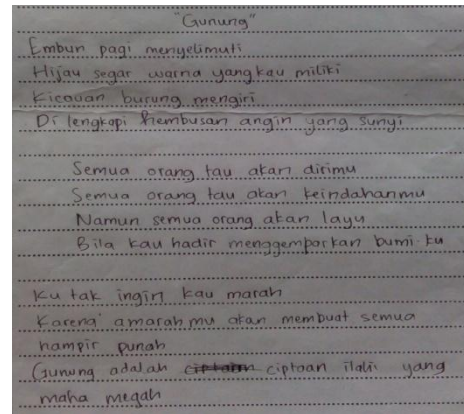 "Gunung"
Embun pagi menyelimuti
Hijau segar warna yang kau miliki
Kicauan burung mengiri
Di lengkapi hembusan angin yang sunyi
Semua orang tau akan dirimu
Semua orang tau akan keindahanmu
Namun semua orang akan layu
Bila kau hadir menggemparkan bumi ku
Ku tak ingin kau marah
Karena amarah mu akan membuat semua
hampir punah
Gunung adalah ciptaan ilahi yang
maha megah